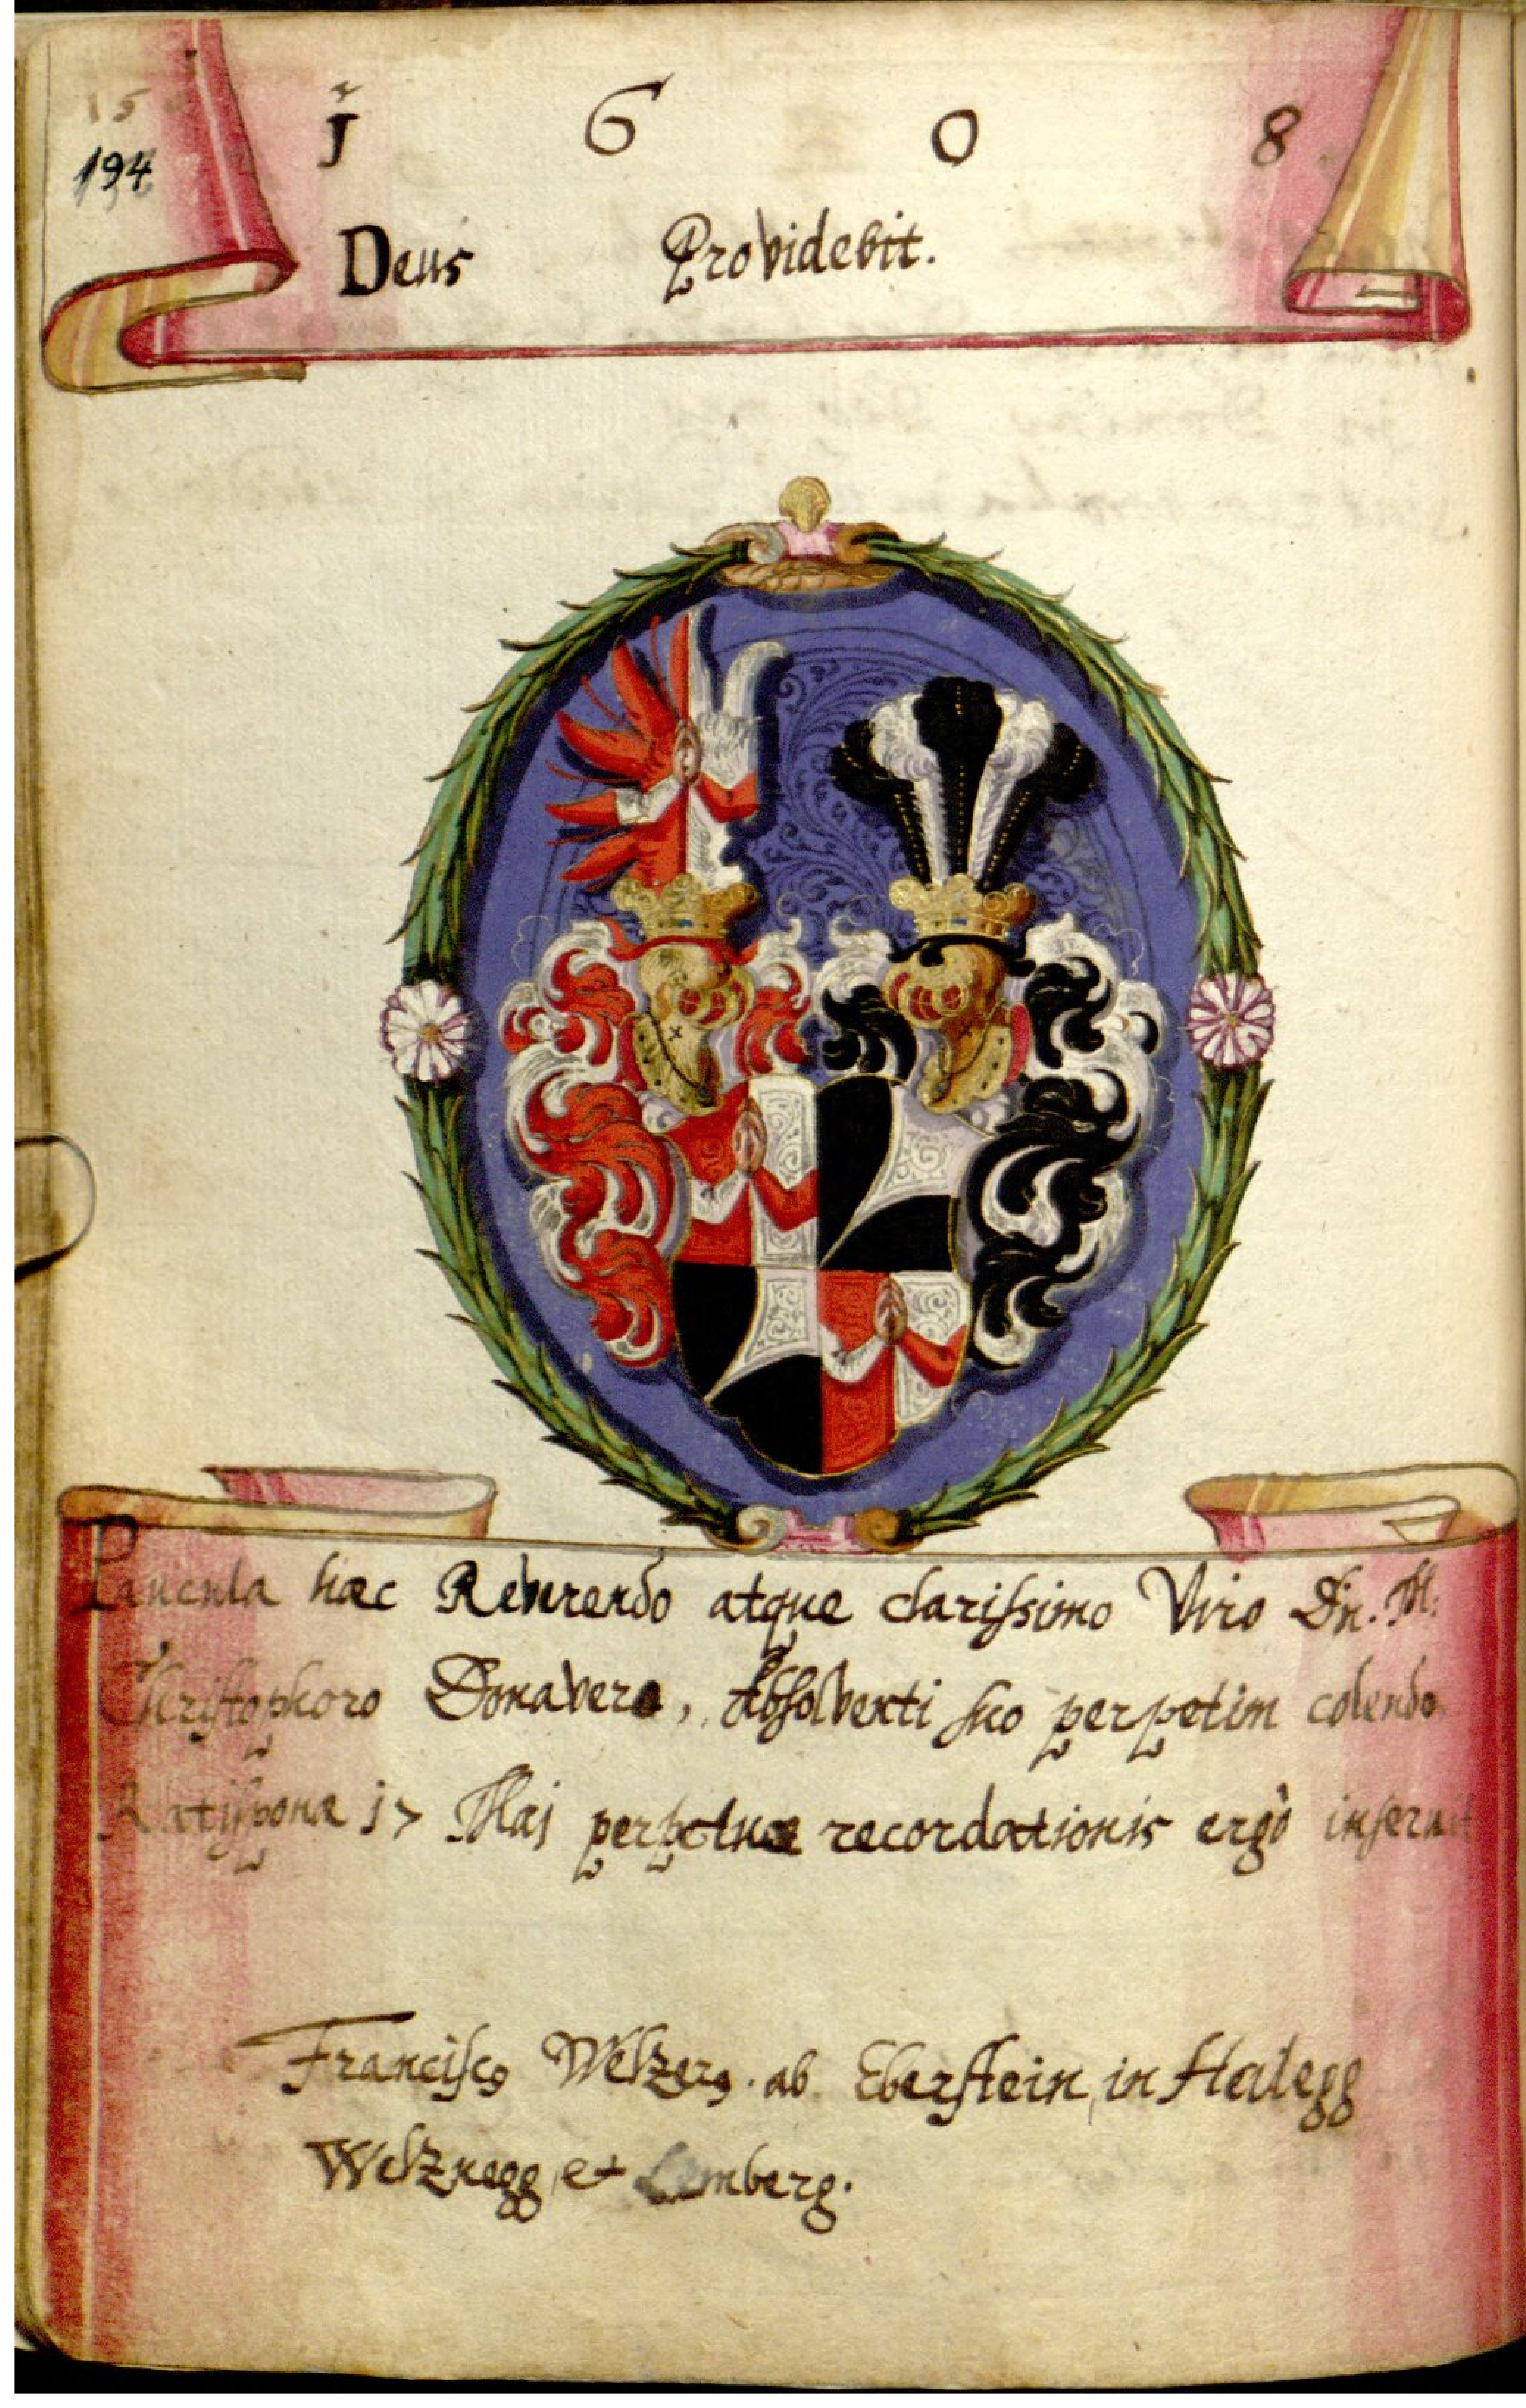 15
194
1 6 0 8
Deus Providebit.
Paucula hæc Reverendo atque clarissimo Viro Dn. M.
Christophoro Donavero, Absolventi suo perpetim colendo
Ratisponæ 17 Maj perpetuæ recordationis ergò inseruit
Franciscus Welzerus. ab Eberstein, in Halegg
Welznegg, et Lemberg.